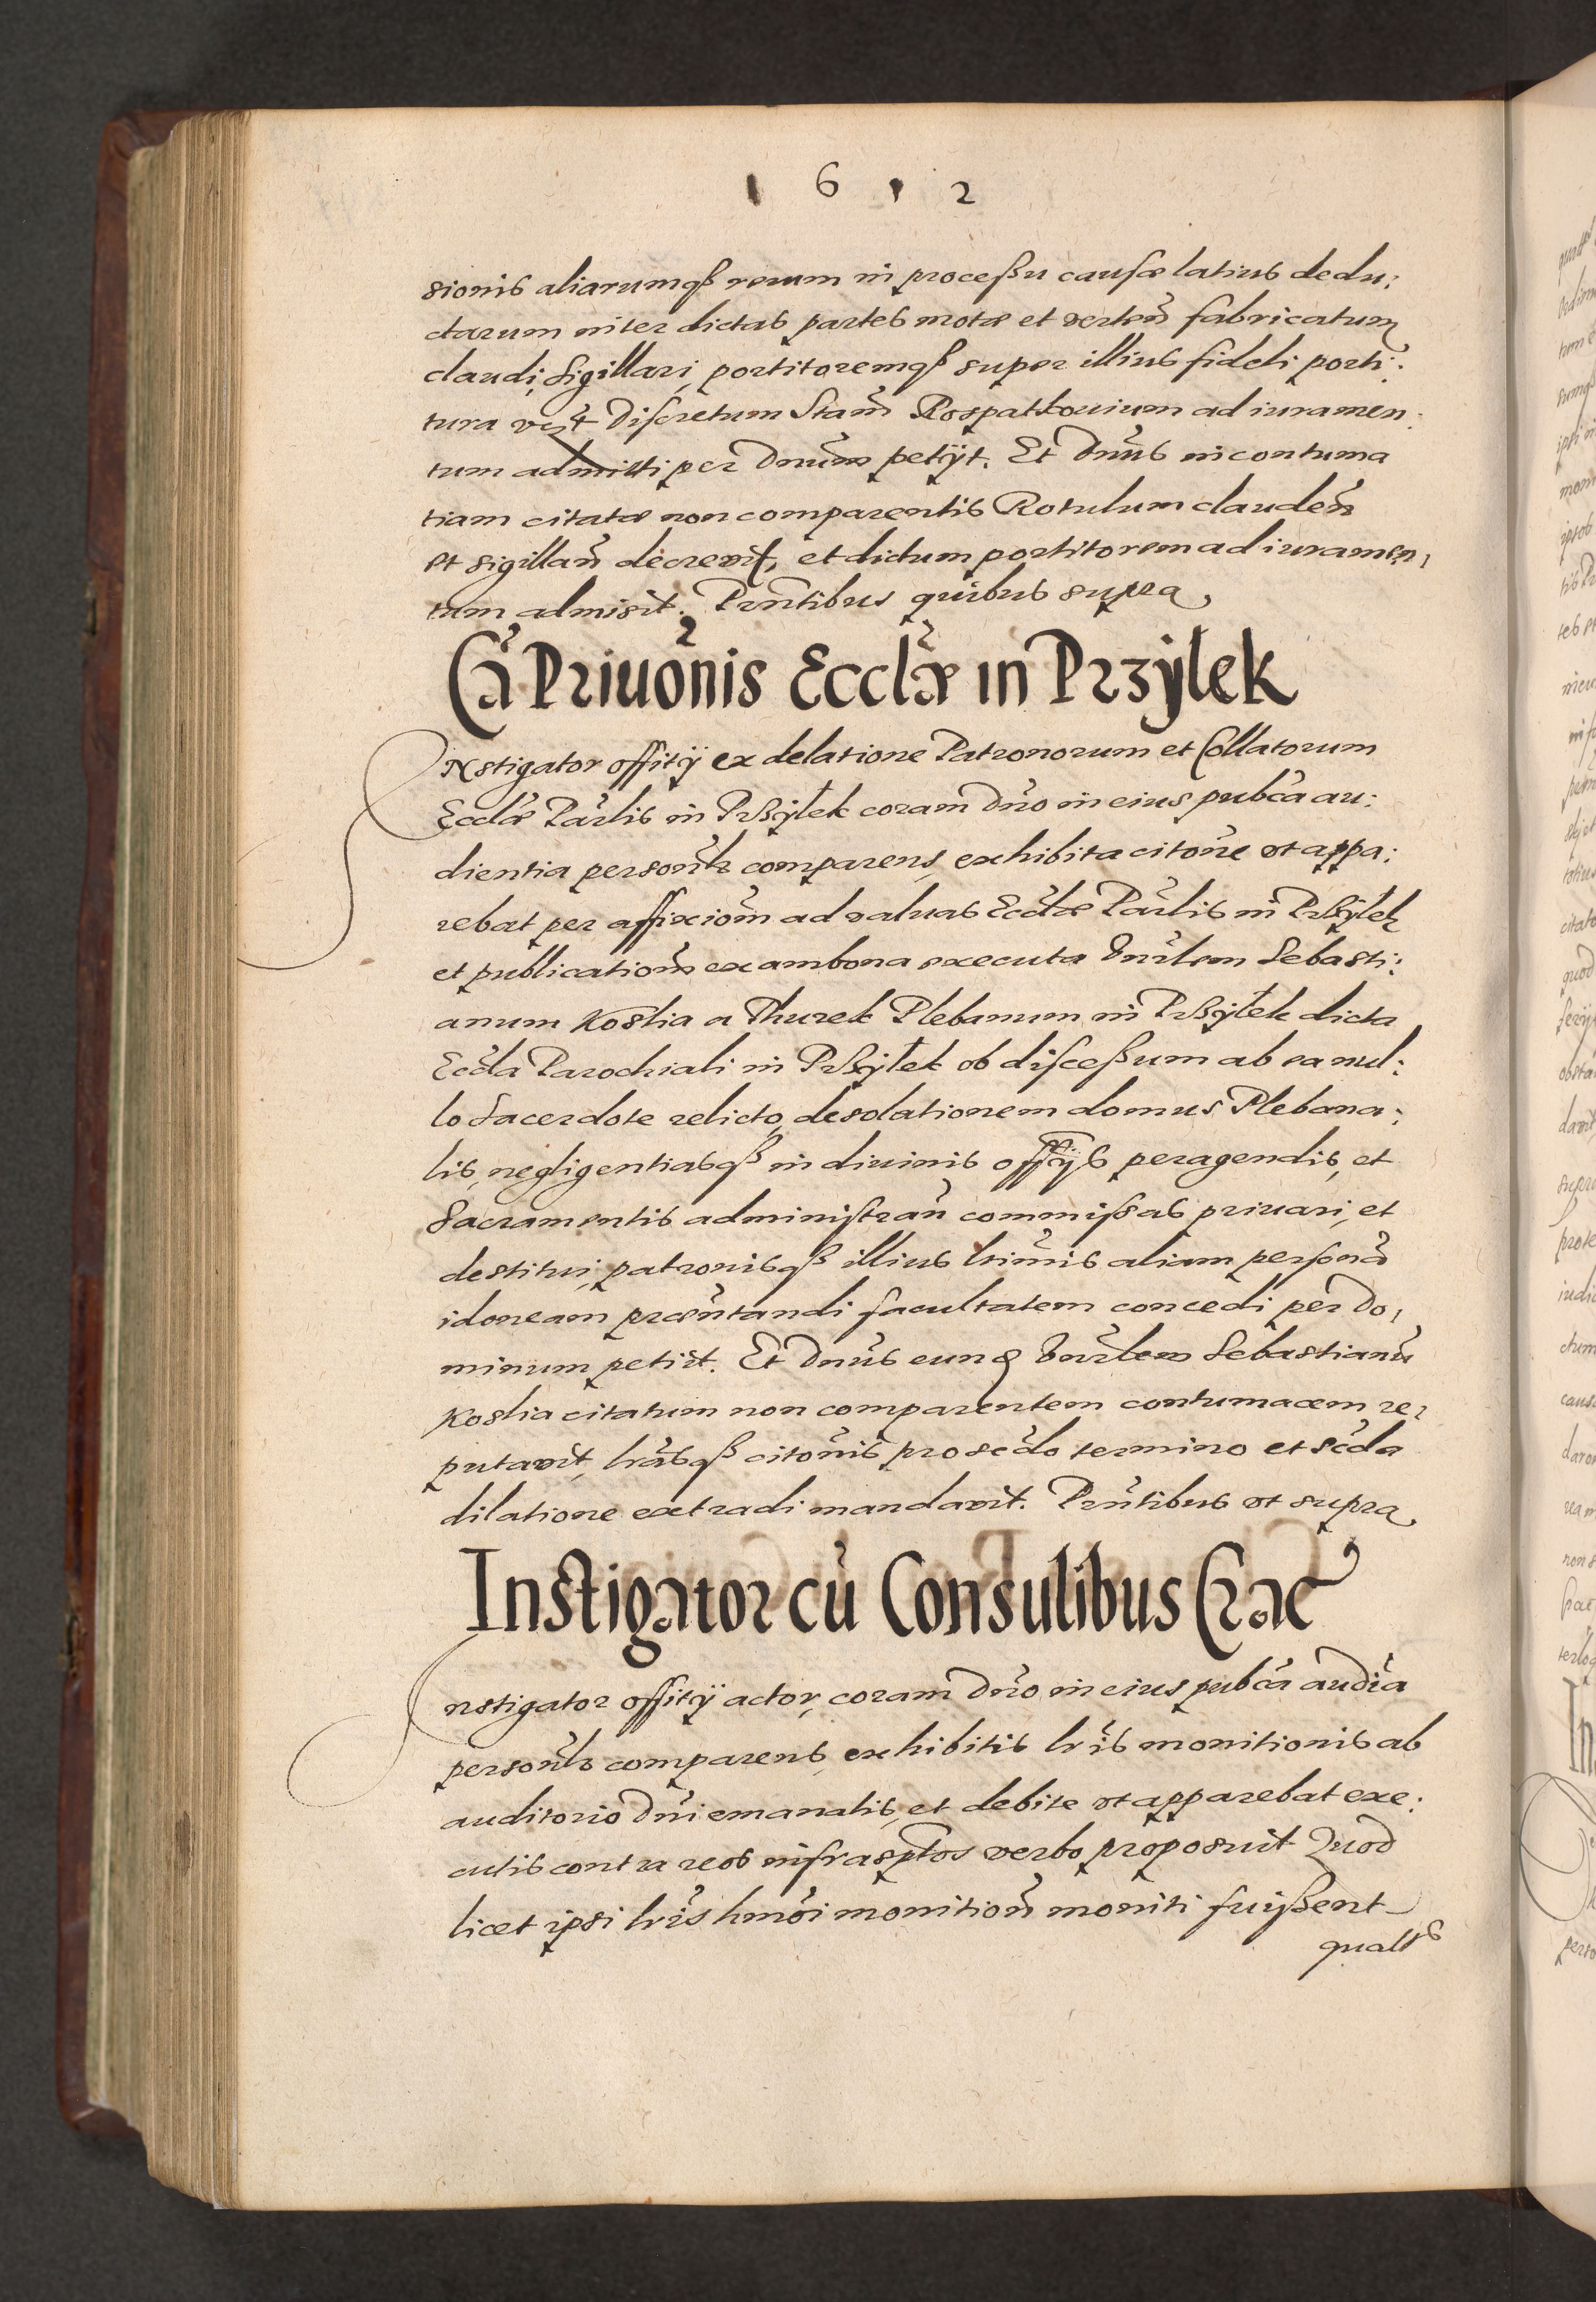 1 6 1 2
sionis aliarumqß rerum in proceßu causæ latius dedu:
ctarum inter dictas partes motæ et verteñ fabricatum
claudi, sigillari, portitoremqß super illius fideli porti:
tura discretum Stañ Rospatkouium ad iuramen:
tum admitti per Dnūm petÿt. Et Dnūs in contuma
tiam citatæ non comparentis Rotulum claudeñ
et sigillañ decrevit, et dictum portitorem ad iuramen,
tum admisit. Prñtibus quibus supra
Cã Priuõnis Ecclæ in Przÿlek
Instigator offitÿ ex delatione Patronorum et Collatorum
Ecclæ Parlis in Przÿłek coram Dño in eius pubca au:
dientia personlr comparens, exhibita citone vt appa:
rebat per affixiom ad valuas Ecclæ Parlis in Przÿłek
et publicationem ex ambona executa Vnrlem Sebasti:
anum Kostia a Thurek Plebanum in Przÿłek dicta
Eccla Parochiali in Przÿłek ob disceßum ab ea nul:
lo Sacerdote relicto, desolationem domus Plebana:
lis, negligentiasqß in diuinis offitÿs peragendis, et
Sacramentis administrañ commißas priuari, et
destitui, patronisqß illius ltimis aliam personã
idoneam præntandi facultatem concedi per Do,
minum petiit. Et Dnūs eunđ Vnrlem Sebastianū
Kostia citatum non comparentem contumacem re,
putavit, lrasqß citonis pro scdo termino et scda
dilatione extradi mandavit. Prñtibus vt supra
Instigator cū Consulibus Crac
Instigator offitÿ actor, coram Dño in eius pubca audia
personlr comparens, exhibitis lris monitionis ab
auditorio Dni emanatis, et debite vt apparebat exe:
cutis contra reos infrasptos verbo proposuit Quod
licet ipsi lris hmoi monitioñ moniti fuißent
quatts